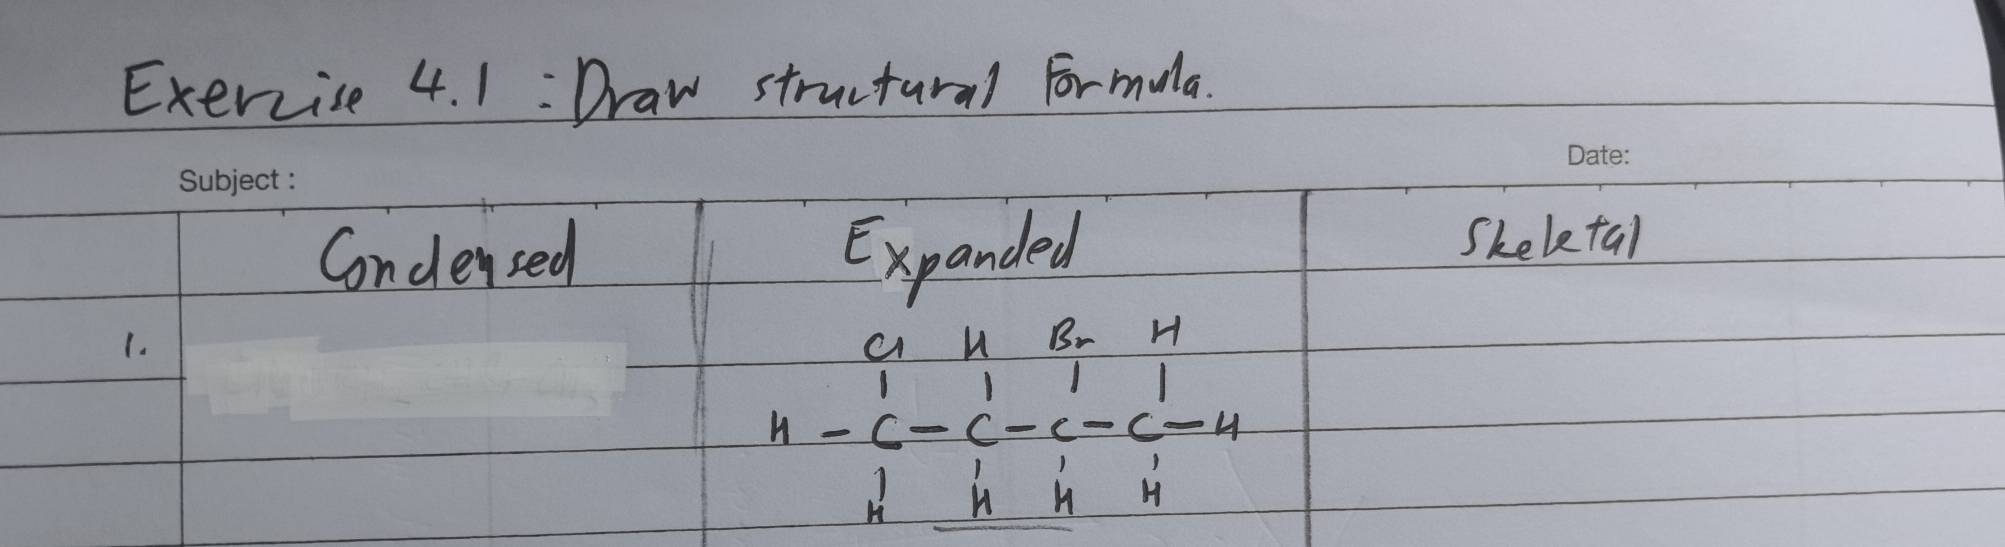 Exercise 4.1 : Draw structural Formula.
Subject : Date:
Condensed Expanded Skeletal
1.
Cl H Br H
H - C - C - C - C - H
H H H H